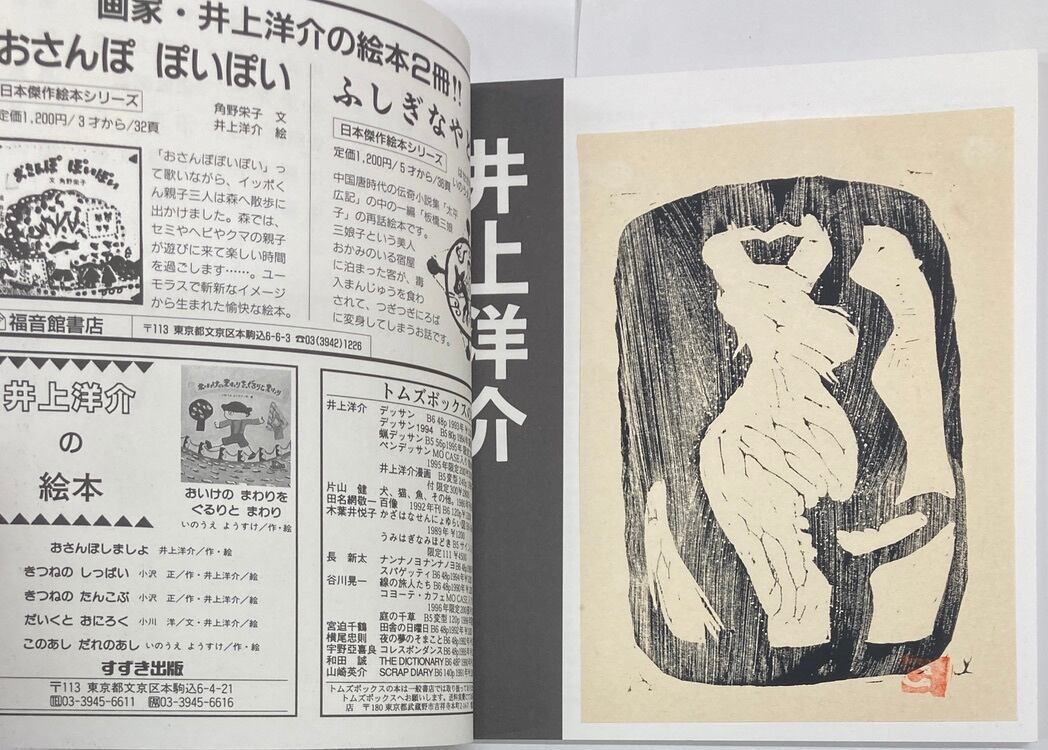 画家・井上洋介の絵本2冊!!
おさんぽ ぽいぽい
日本傑作絵本シリーズ
定価1,200円/3才から/32頁
角野栄子 文
井上洋介 絵
おさんぽ ぽいぽい
文 角野栄子
「おさんぽぽいぽい」っ
て歌いながら、イッポく
ん親子三人は森へ散歩に
出かけました。森では、
セミやヘビやクマの親子
が遊びに来て楽しい時間
を過ごします……。ユー
モラスで斬新なイメージ
から生まれた愉快な絵本。
ふしぎなや
日本傑作絵本シリーズ
定価1,200円/5才から/36頁
中国唐時代の伝奇小説集「太平
広記」の中の一編「板橋三娘
子」の再話絵本です。
三娘子という美人
おかみのいる宿屋
に泊まった客が、毒
入まんじゅうを食わ
されて、つぎつぎにろば
に変身してしまうお話です。
福音館書店
〒113 東京都文京区本駒込6-6-3 ☎03(3942)1226
井上洋介
の
絵本
おいけの まわりを
ぐるりと まわり
いのうえ ようすけ/作・絵
おさんぽしましよ 井上洋介/作・絵
きつねの しっぱい 小沢 正/作・井上洋介/絵
きつねの たんこぶ 小沢 正/作・井上洋介/絵
だいくと おにろく 小川 洋/文・井上洋介/絵
このあし だれのあし いのうえ ようすけ/作・絵
すずき出版
〒113 東京都文京区本駒込6-4-21
℡03-3945-6611 FAX03-3945-6616
トムズボックスの
井上洋介 デッサン B6 48p 1993年
デッサン1994 B5 80p 1994
蝋デッサン B5 56p 1995年
ペンデッサン MO CASE
1995年限定200
井上洋介漫画 B5変型 240p
付 限定300
片山 健 犬、猫、魚、その他。1986年
田名網敬一 百像 1992年刊 B6 120p
木葉井悦子 かざはなせんにょゆらい
1989年 ¥1200
うみはぎなみほどき B5
限定111 ¥4500
長 新太 ナンナノヨナンナノヨ B6 48p
スパゲッティ B6 48p 1994年
谷川晃一 線の旅人たち B6 48p 1990年
コヨーテ・カフェ MO CASE
1996年限定200
庭の千草 B5変型 120p
宮迫千鶴 田舎の日曜日 B6 48p 1992年
横尾忠則 夜の夢のそまこと B6 48p 1992年
宇野亞喜良 コレスポンダンス B6 48p
和田 誠 THE DICTIONARY B6 48p
山崎英介 SCRAP DIARY B6 140p 1991年
トムズボックスの本は一般書店では取り扱って
トムズボックスへお願いします。送料実費
店 〒180 東京都武蔵野市吉祥寺本町2-
井上洋介